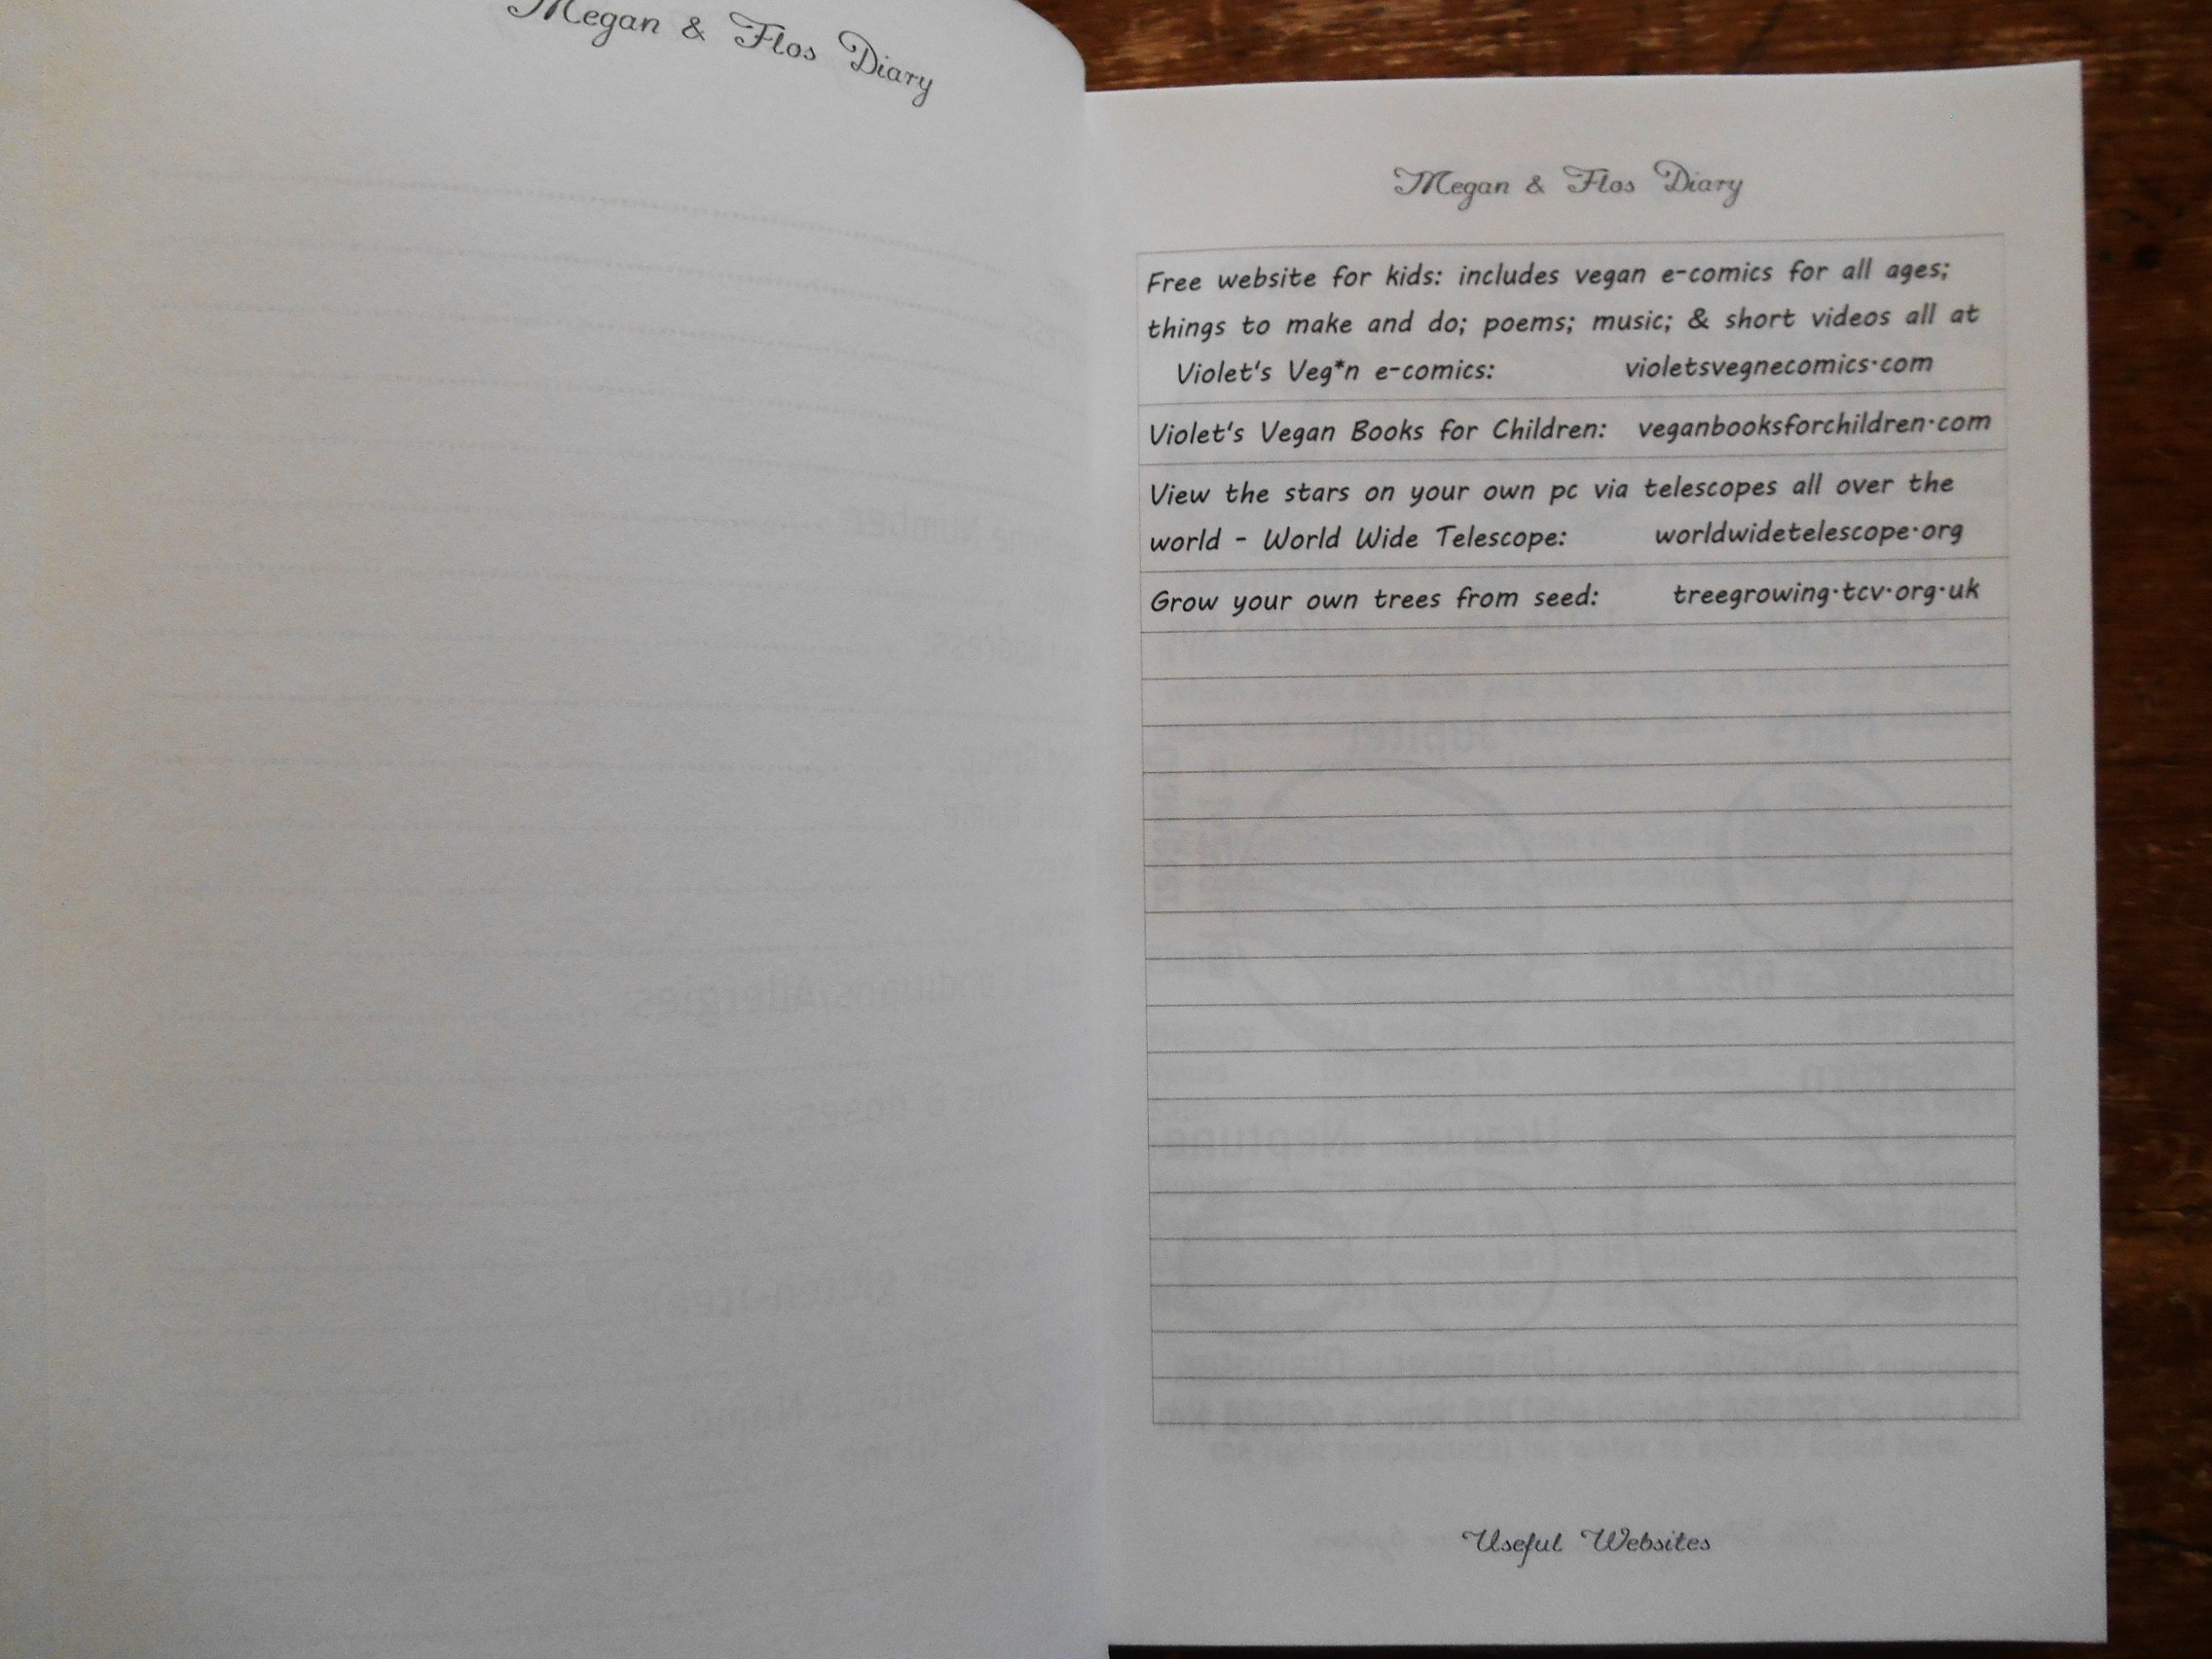 Megan & Flos Diary
Megan & Flos Diary
Free website for kids: includes vegan e-comics for all ages;
things to make and do; poems; music; & short videos all at
Violet's Veg*n e-comics: violetsvegnecomics·com
Violet's Vegan Books for Children: veganbooksforchildren·com
View the stars on your own pc via telescopes all over the
world - World Wide Telescope: worldwidetelescope·org
Grow your own trees from seed: treegrowing·tcv·org·uk
Useful Websites